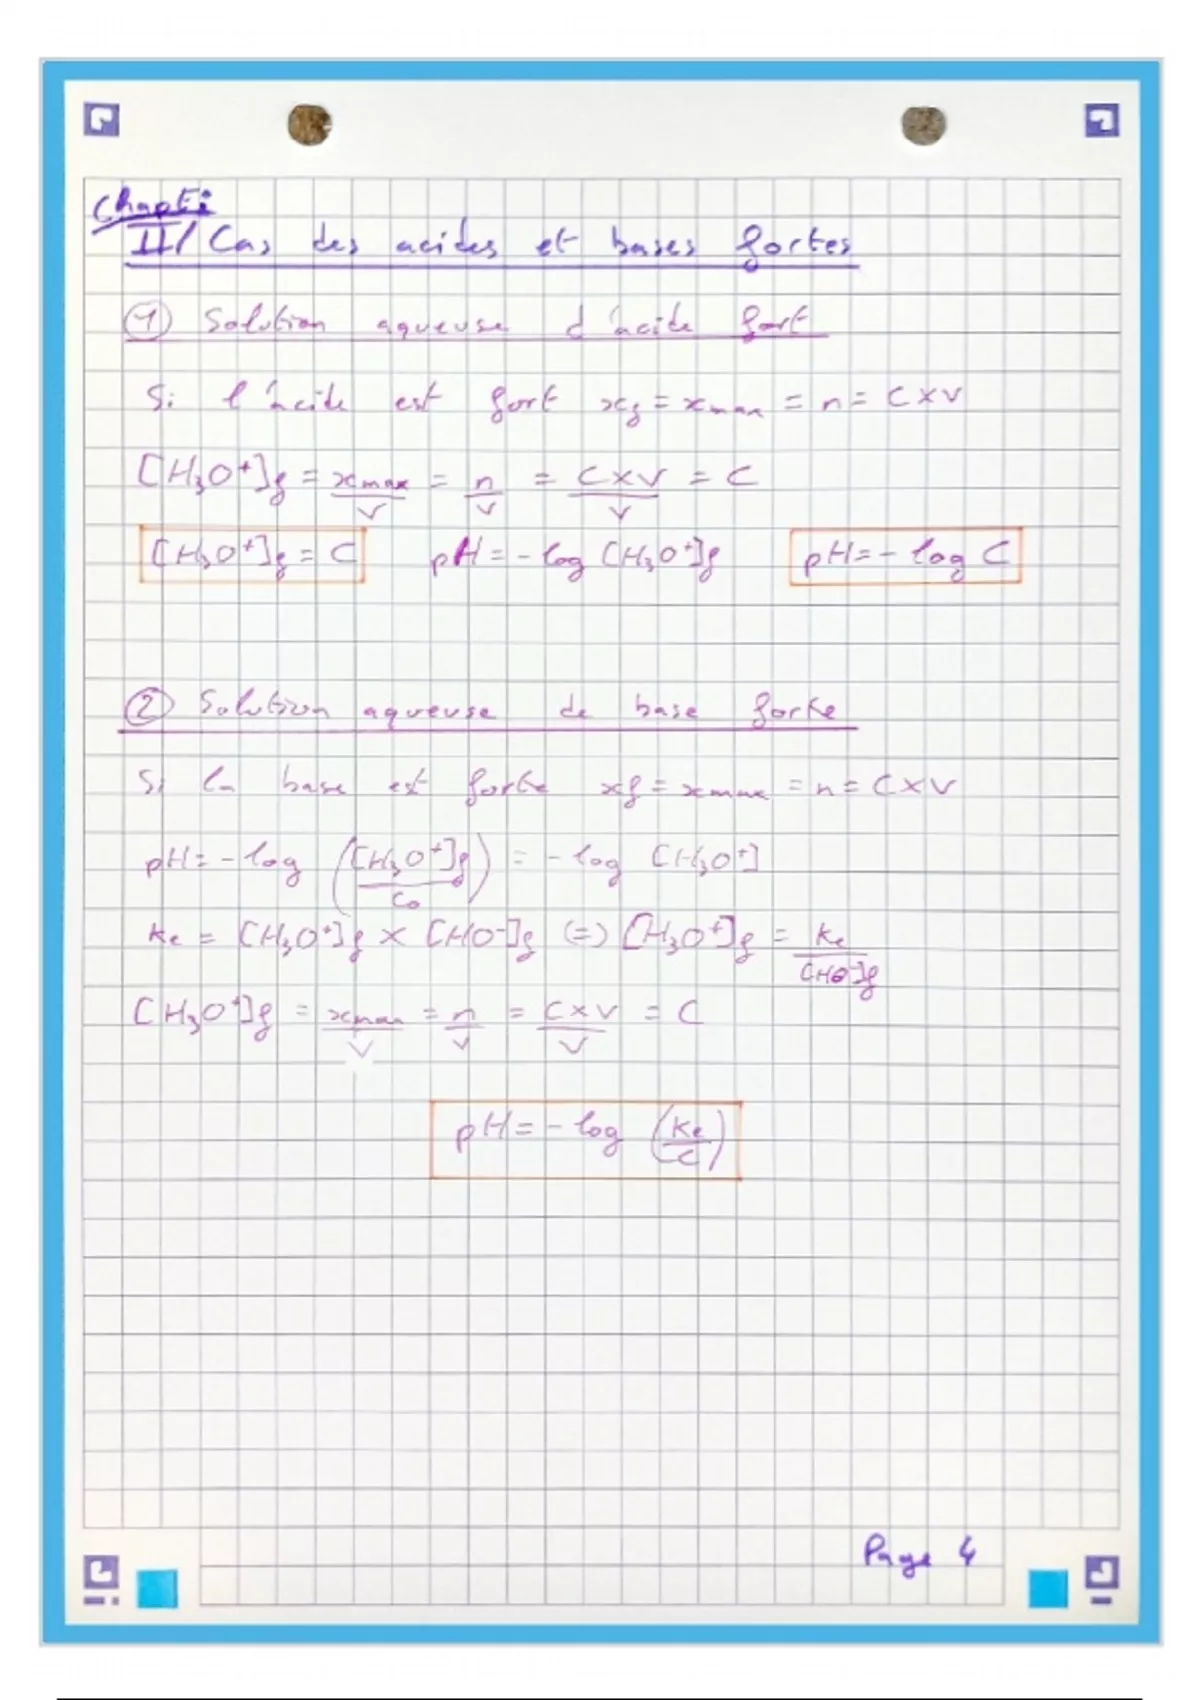 Chapti
II/ Cas des acides et bases fortes
① Solution aqueuse d'acide fort
Si l'acide est fort xf = xmax = n = C×V
[H₃O⁺]f = xmax/V = n/V = C×V/V = C
[H₃O⁺]f = C pH = - log [H₃O⁺]f pH = - log C
② Solution aqueuse de base forte
Si la base est forte xf = xmax = n = C×V
pH = - log ([H₃O⁺]f/C₀) = - log [H₃O⁺]
Ke = [H₃O⁺]f × [HO⁻]f (=) [H₃O⁺]f = Ke/[HO⁻]f
[H₃O⁺]f = xmax/V = n/V = C×V/V = C
pH = - log (Ke/C)
Page 4